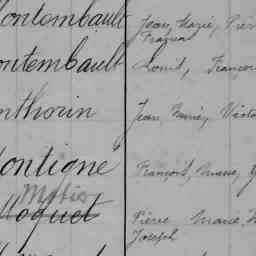 ontembault Jean, Marie, Pier
France
ontembault Louis, François
nthorin Jean, Marie, Victo
ontigne François, Marie,
Metis
oquet Pierre Marie
Joseph